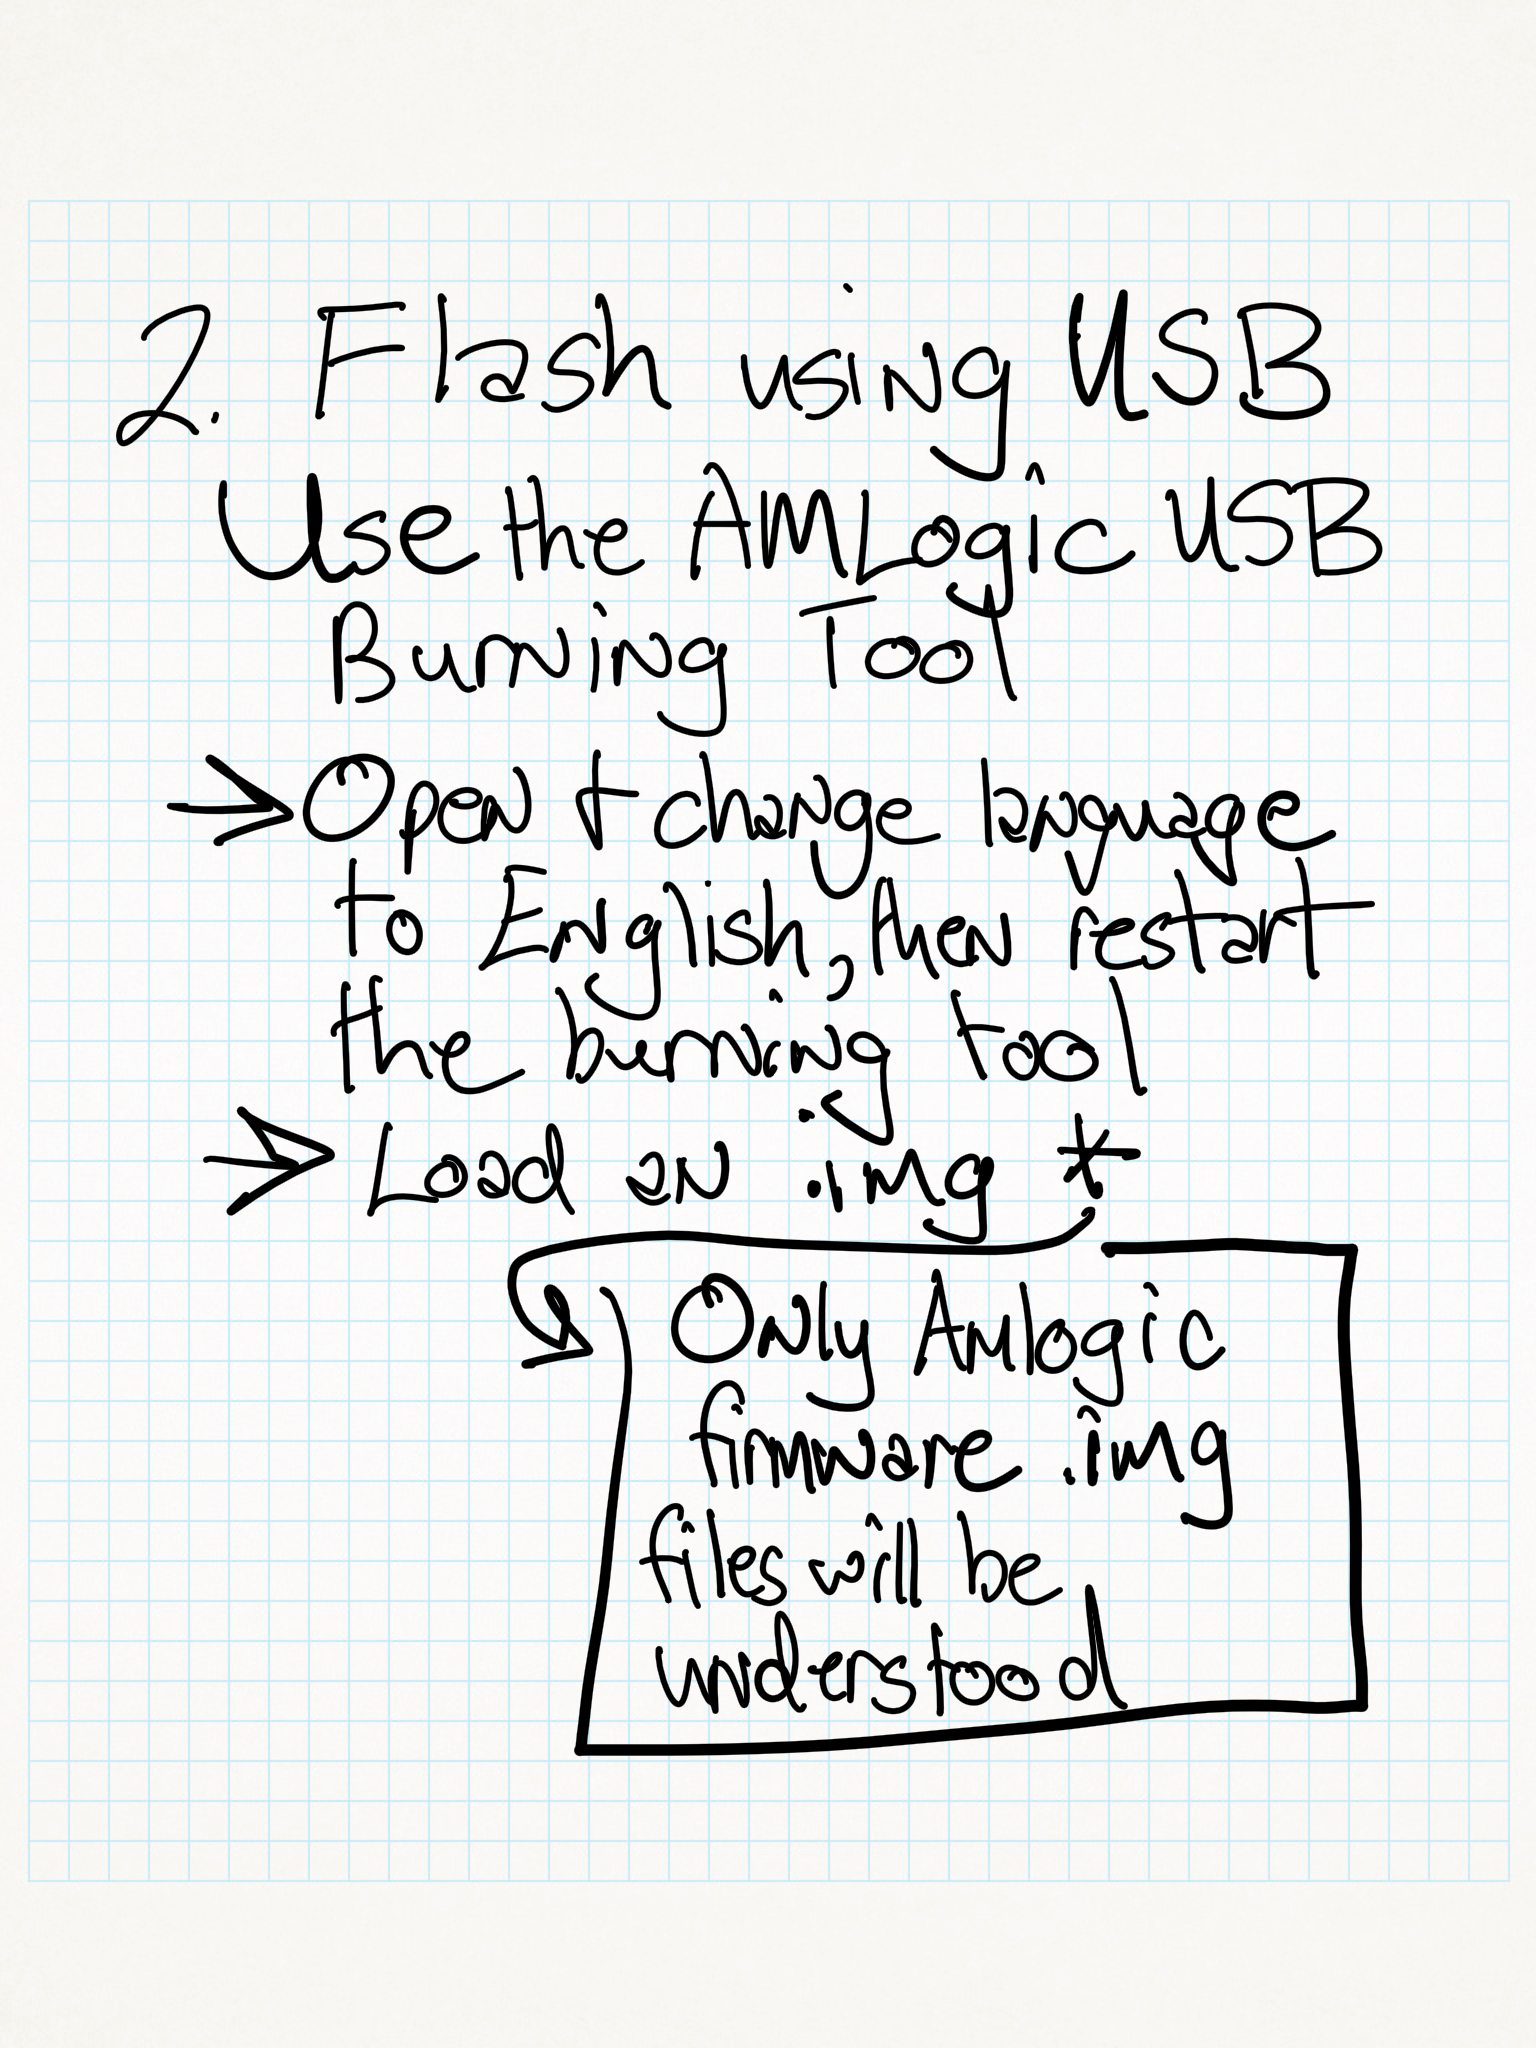 2. Flash using USB
Use the AMLogic USB
Burning Tool
→ Open + change language
to English, then restart
the burning tool
→ Load an .img *
Only Amlogic
firmware .img
files will be
understood